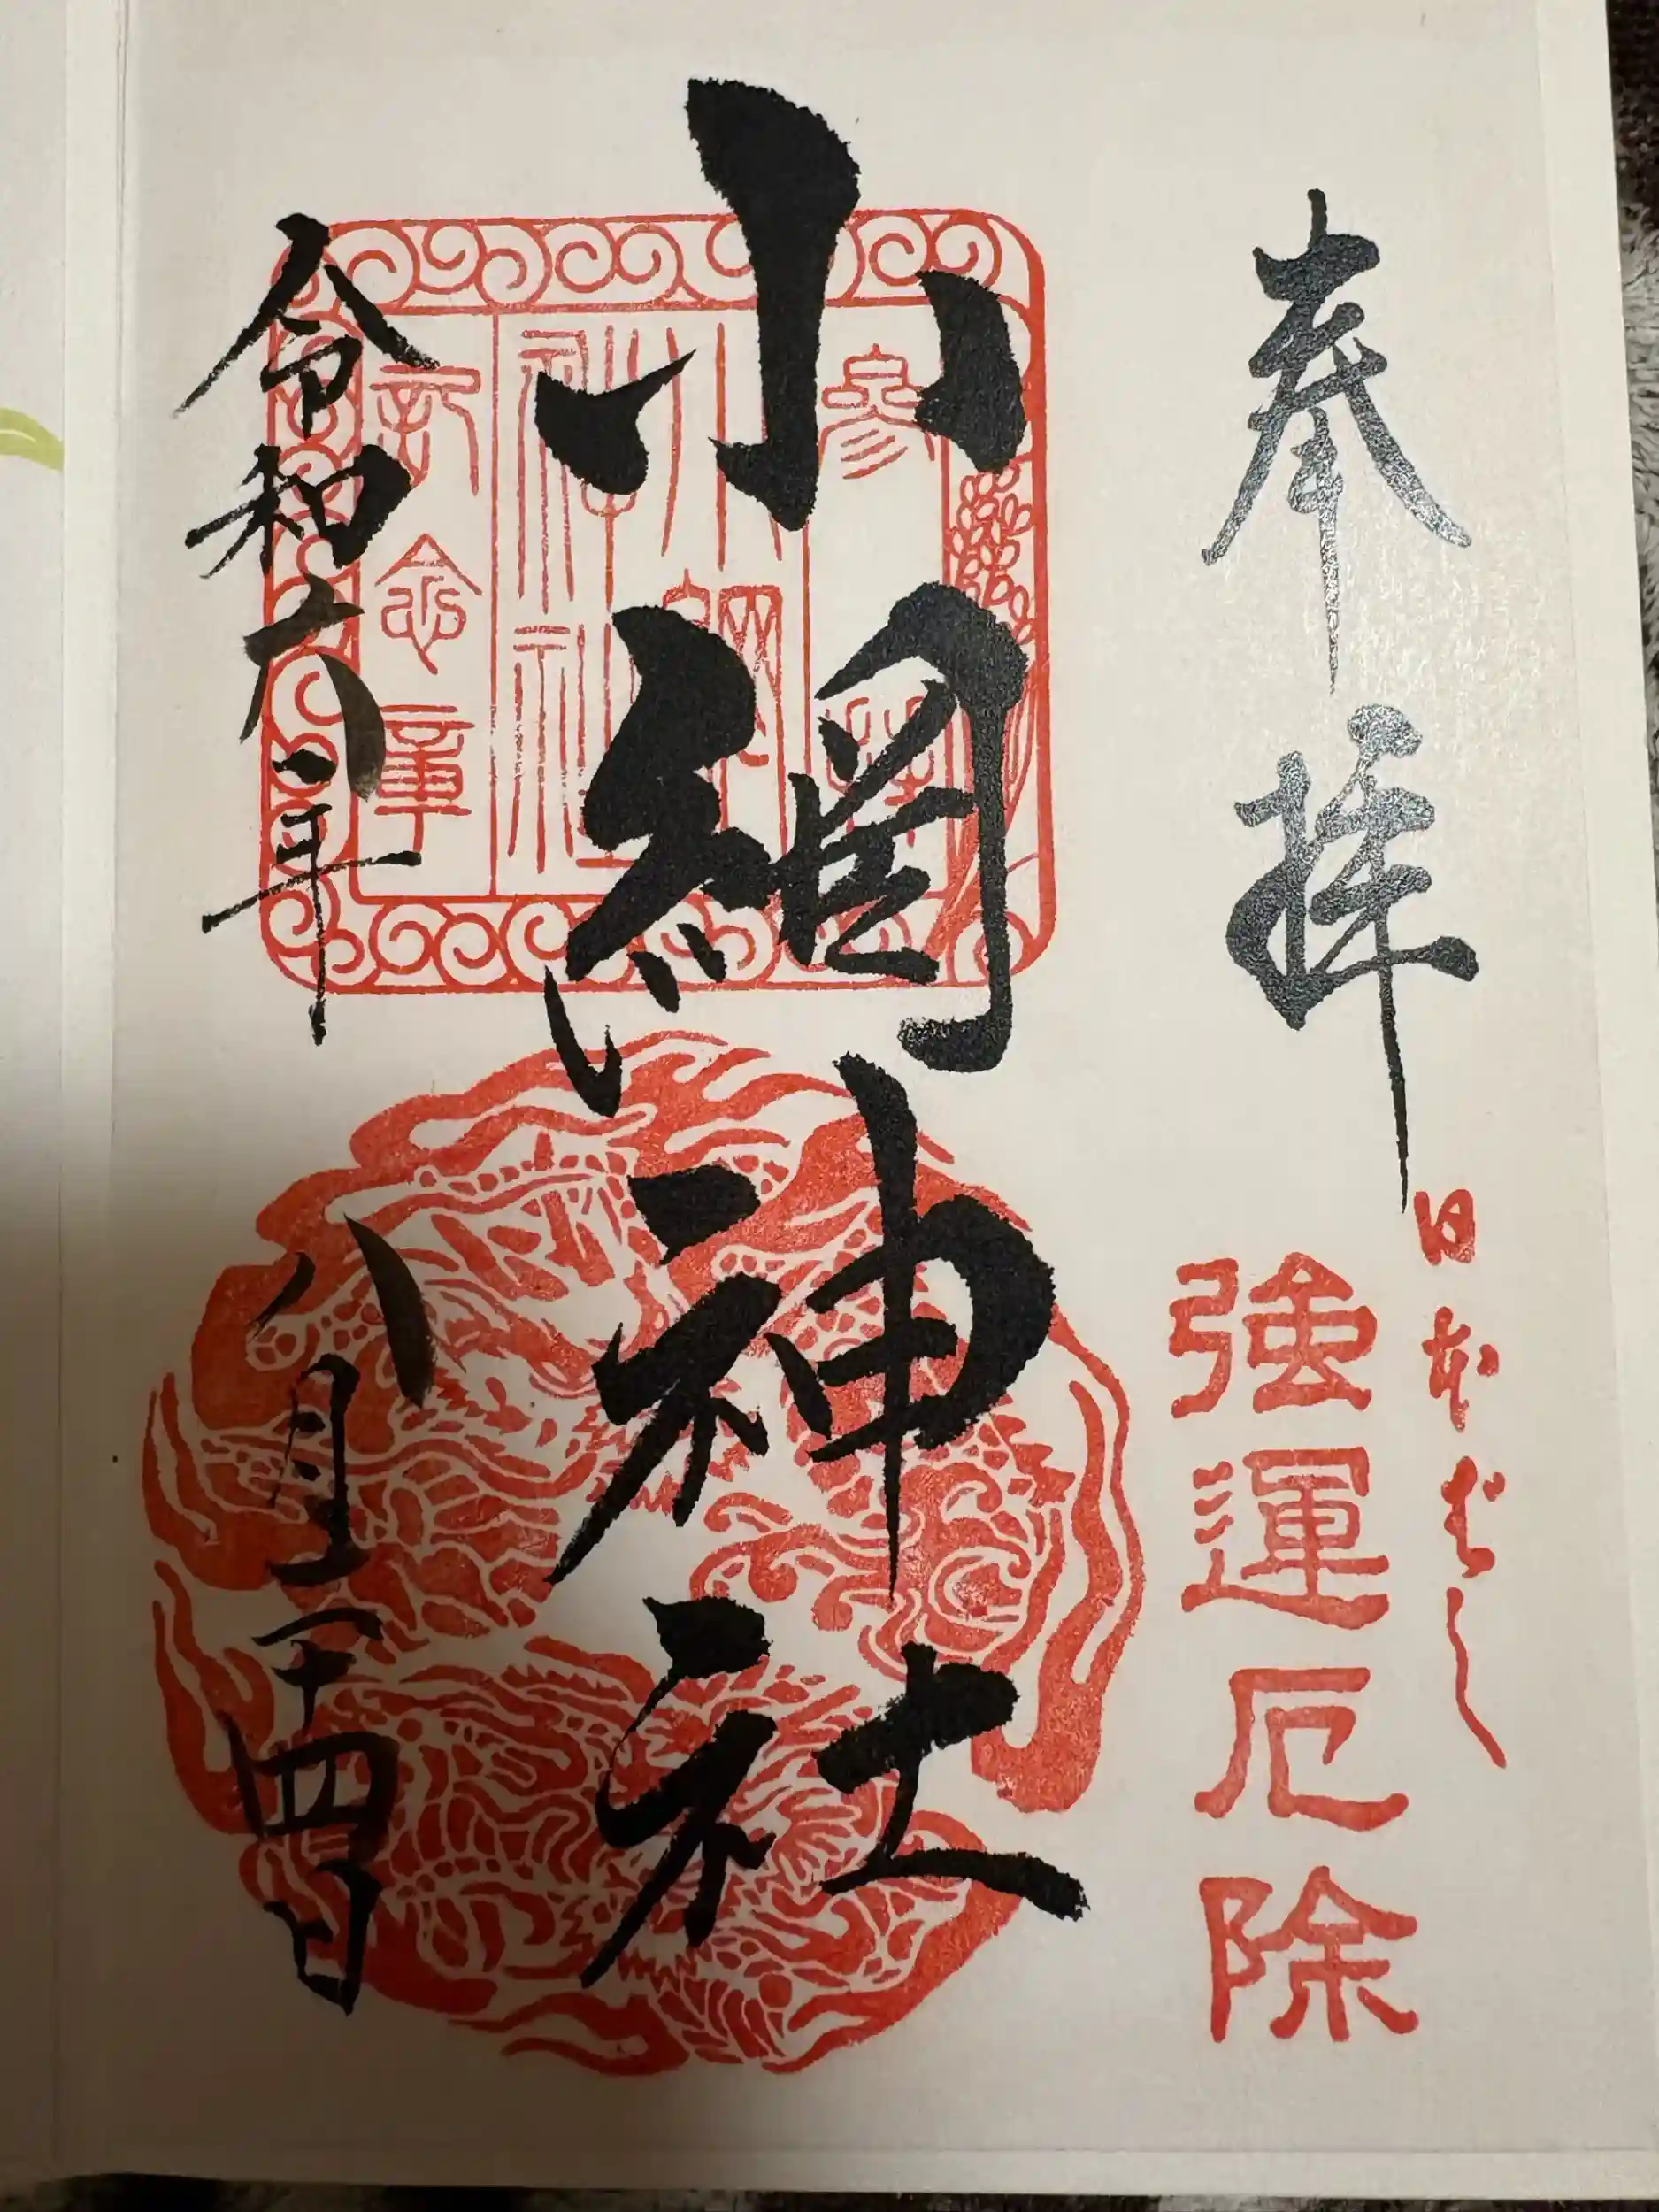 奉拝
日本ばし
強運厄除
小網神社
參拜
小網
神社
記念章
令和六年
八月二十四日